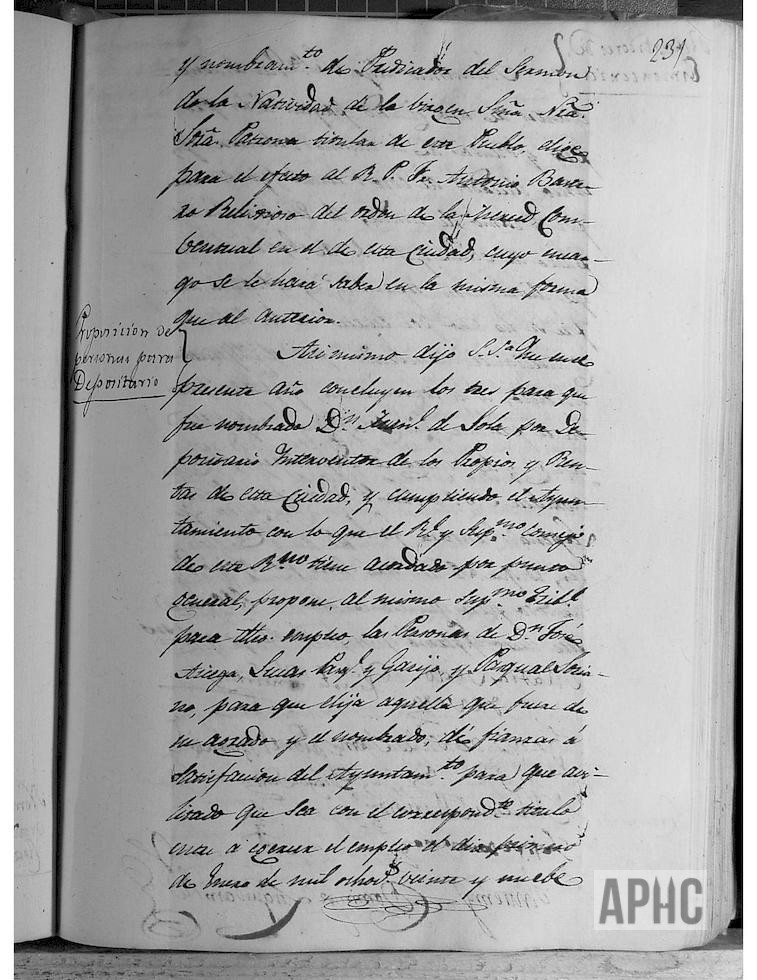 231
y nombram.to de Predicador del Sermon
de la Natividad de la Virgen Señã Nrã
Sorã Patrona titular de este Pueblo, elige
para el efecto al R. P. Fr. Antonio Barre-
ro Religioso del orden de la Merced Com-
bentual en el de esta Ciudad, cuyo encar-
go se le hará saber en la misma forma
que al anterior.
Proposicion de
personas para
Depositario
Asimismo dijo S. S.a Que en el
presente año concluyen los tres para que
fue nombrado D.n Juan de Sola por De-
positario Interventor de los Propios y Ren-
tas de esta Ciudad, y cumpliendo el Ayun-
tamiento con lo que el R.l y Sup.mo Consejo
de este R.no tiene acordado por punto
general, propone al mismo Sup.mo Tribl.
para dho. empleo, las Personas de D.n José
Lucas y Garijo, y Pasqual Soria-
no, para que elija aquella que fuere de
su agrado y el nombrado, dé fianzas á
satisfacion del Ayuntam.to para que avi-
litado que sea con el correspond.te titulo
entre á egercer el empleo el dia primero
de Enero de mil ochos. veinte y nuebe
APHC